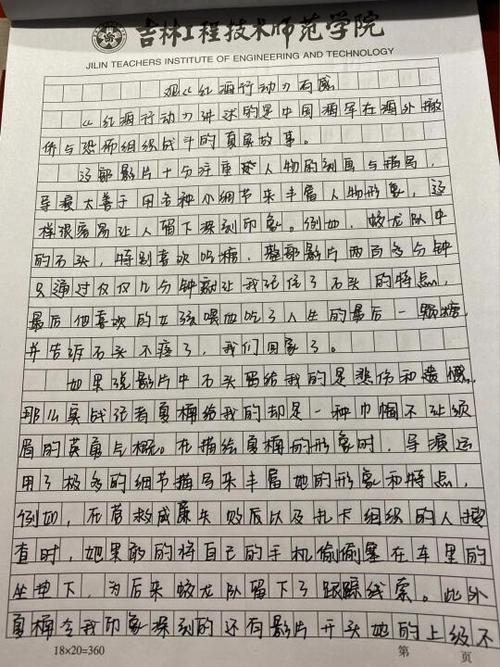 吉林工程技术师范学院
JILIN TEACHERS INSTITUTE OF ENGINEERING AND TECHNOLOGY
观《红海行动》有感
《红海行动》讲述的是中国海军在海外撤
侨与恐怖组织战斗的真实故事。
这部影片十分注重人物的刻画与描写,
导演太善于用各种小细节来丰富人物形象,这
样很容易让人留下深刻印象。例如,蛟龙队中
的石头,特别喜欢吃糖,整部影片两百多分钟
只通过仅仅几分钟就让我记住了石头的特点,
最后他喜欢的女孩喂他吃了人生的最后一颗糖,
并告诉石头不疼了,我们回家了。
如果说影片中石头留给我的是悲伤和遗憾,
那么实战记者夏楠给我的却是一种巾帼不让须
眉的英勇气概。在描绘夏楠的形象时,导演运
用了极多的细节描写来丰富她的形象和特点,
例如,在营救威廉失败后以及扎卡组织的人搜
查时,她果敢的将自己的手机偷偷塞在车里的
坐垫下,为后来蛟龙队留下了跟踪线索。此外
夏楠令我印象深刻的还有影片开头她的上级不
18×20=360
第 页